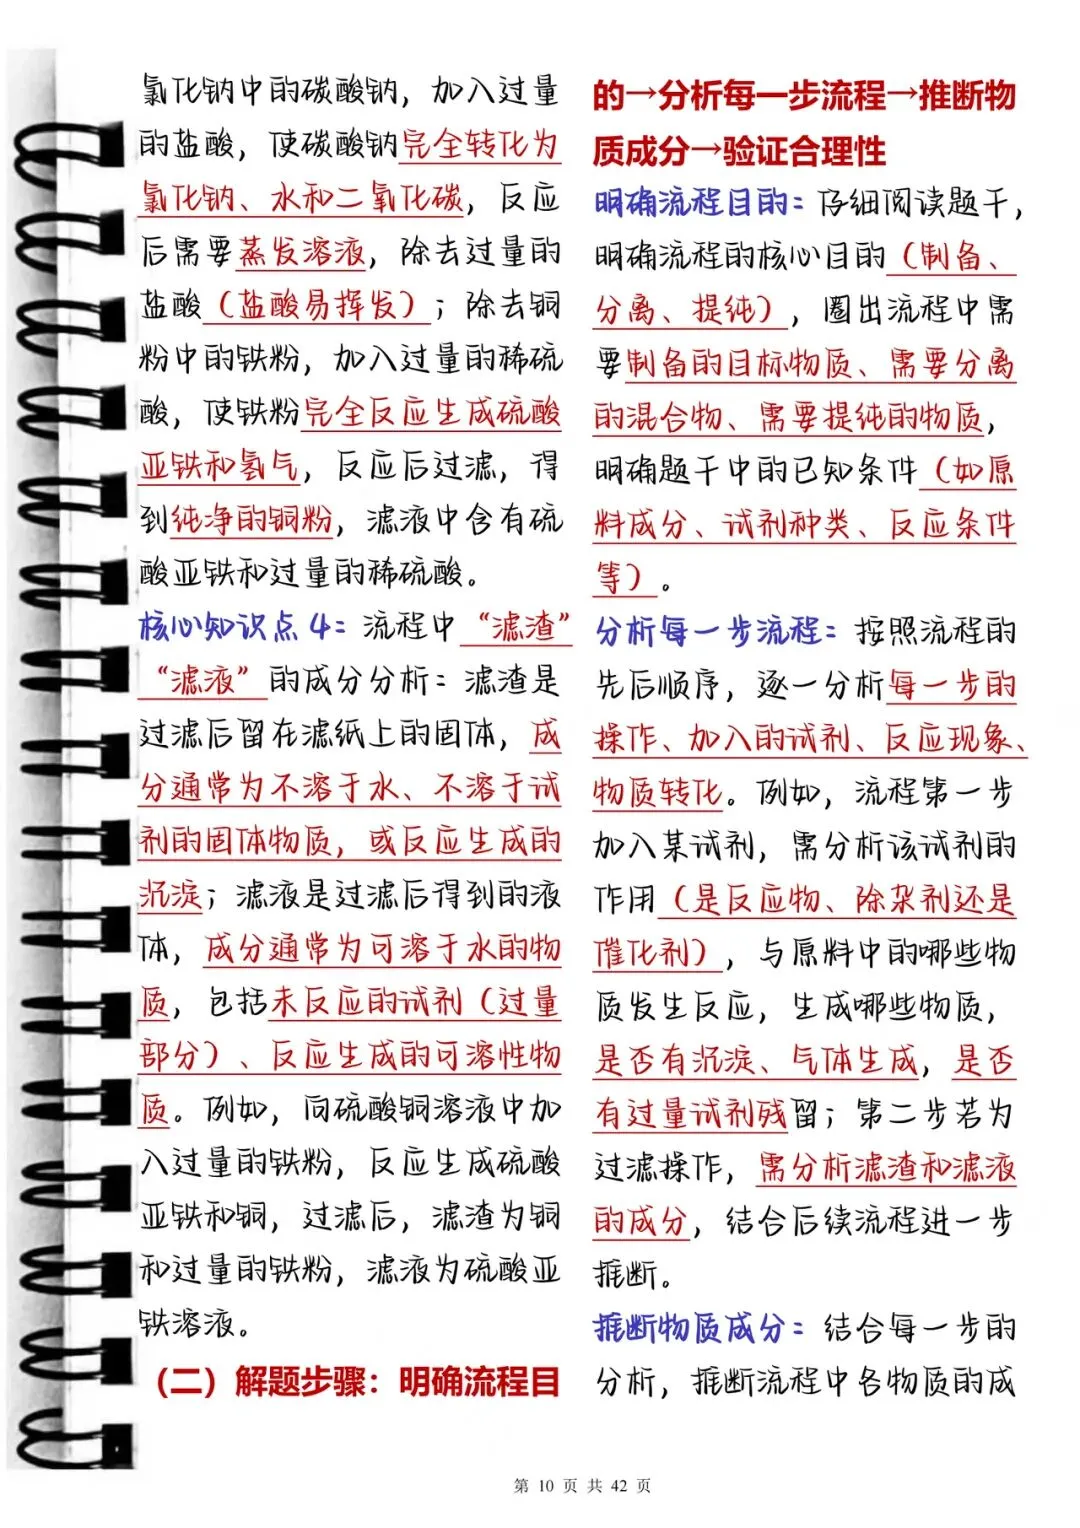 氯化钠中的碳酸钠，加入过量
的盐酸，使碳酸钠完全转化为
氯化钠、水和二氧化碳，反应
后需要蒸发溶液，除去过量的
盐酸（盐酸易挥发）；除去铜
粉中的铁粉，加入过量的稀硫
酸，使铁粉完全反应生成硫酸
亚铁和氢气，反应后过滤，得
到纯净的铜粉，滤液中含有硫
酸亚铁和过量的稀硫酸。
核心知识点4：流程中“滤渣”
“滤液”的成分分析：滤渣是
过滤后留在滤纸上的固体，成
分通常为不溶于水、不溶于试
剂的固体物质，或反应生成的
沉淀；滤液是过滤后得到的液
体，成分通常为可溶于水的物
质，包括未反应的试剂（过量
部分）、反应生成的可溶性物
质。例如，向硫酸铜溶液中加
入过量的铁粉，反应生成硫酸
亚铁和铜，过滤后，滤渣为铜
和过量的铁粉，滤液为硫酸亚
铁溶液。
（二）解题步骤：明确流程目
的→分析每一步流程→推断物
质成分→验证合理性
明确流程目的：仔细阅读题干，
明确流程的核心目的（制备、
分离、提纯），圈出流程中需
要制备的目标物质、需要分离
的混合物、需要提纯的物质，
明确题干中的已知条件（如原
料成分、试剂种类、反应条件
等）。
分析每一步流程：按照流程的
先后顺序，逐一分析每一步的
操作、加入的试剂、反应现象、
物质转化。例如，流程第一步
加入某试剂，需分析该试剂的
作用（是反应物、除杂剂还是
催化剂），与原料中的哪些物
质发生反应，生成哪些物质，
是否有沉淀、气体生成，是否
有过量试剂残留；第二步若为
过滤操作，需分析滤渣和滤液
的成分，结合后续流程进一步
推断。
推断物质成分：结合每一步的
分析，推断流程中各物质的成
第 10 页 共 42 页